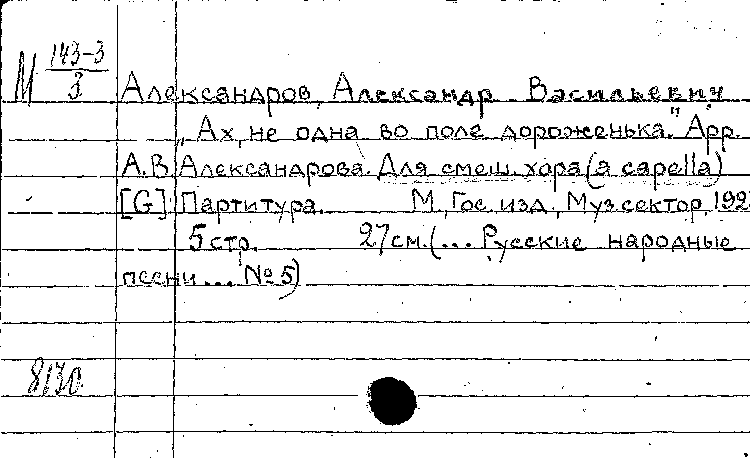 М 143-3
3
Александров, Александр Васильевич
"Ах, не одна во поле дороженька." Арр.
А.В. Александрова. Для смеш. хора (a capella)
[G] Партитура. М., Гос. изд., Муз. сектор, 192
5 стр. 27 см. (... Русские народные
песни... № 5)
8130